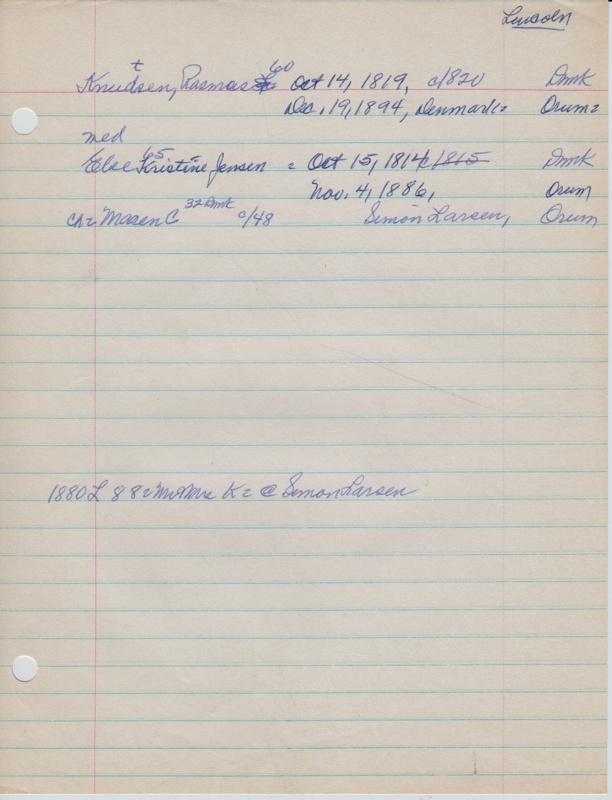 Lincoln
t 60
Knudsen, Rasmas Oct 14, 1819, c/820 Dmk
Dec. 19, 1894, Denmark= Orum=
med
65
Else Kristine Jensen = Oct 15, 1814 c/815 Dmk
Nov. 4, 1886, Orum
32 Dmk
ch= Maren C c/48 Simon Larsen, Orum
1880 L 88= Mr Mrs K= @ Simon Larsen